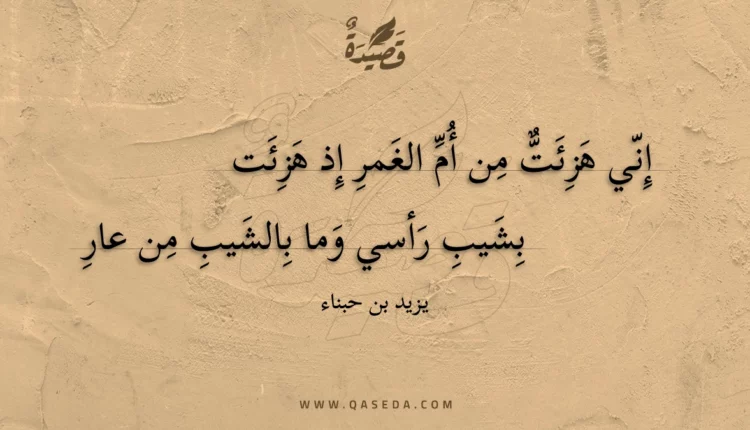 قَصِيدَةٌ
إِنّي هَزِئَتٌّ مِن أُمِّ الغَمرِ إِذ هَزِئَت
بِشَيبِ رَأسي وَما بِالشَيبِ مِن عارِ
يزيد بن حبناء
WWW.QASEDA.COM